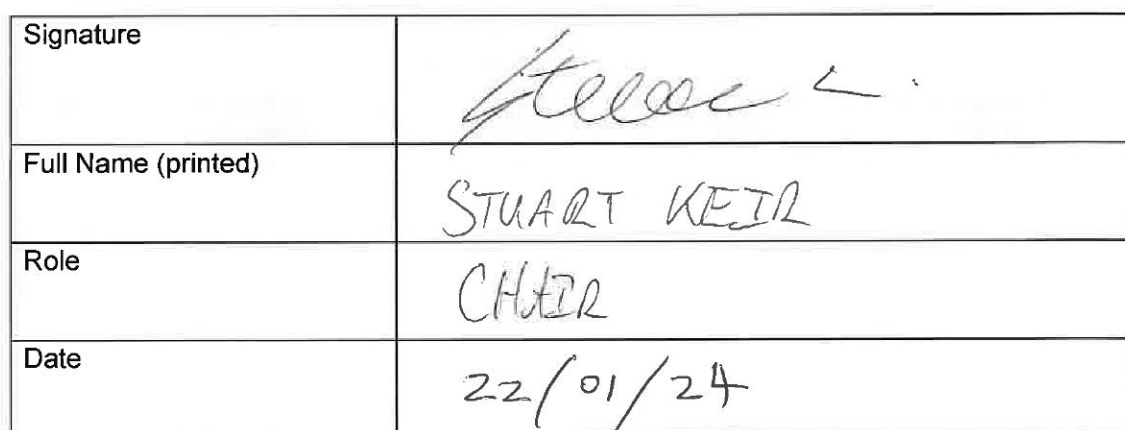 Signature
Full Name (printed) STUART KEIR
Role CHAIR
Date 22/01/24